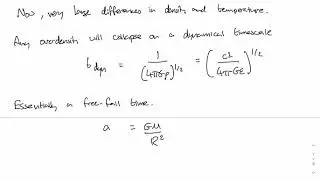 Now, very large differences in density and temperature.
Any overdensity will collapse on a dynamical timescale
t dyn = 1 / (4πGρ)^1/2 = (c² / 4πGε)^1/2
Essentially a free-fall time.
a = GM / R²